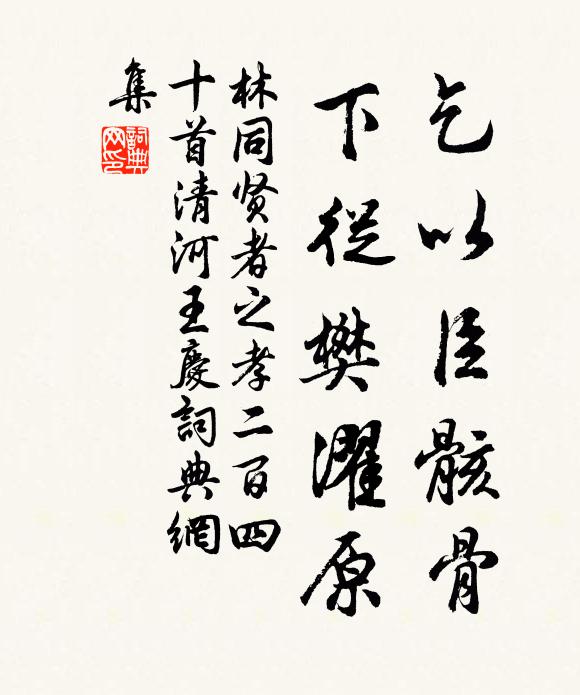 乞以臣骸骨
下從樊濯原
林同贤者之孝二百四
十首清河王慶詞典網
集
詞典网印